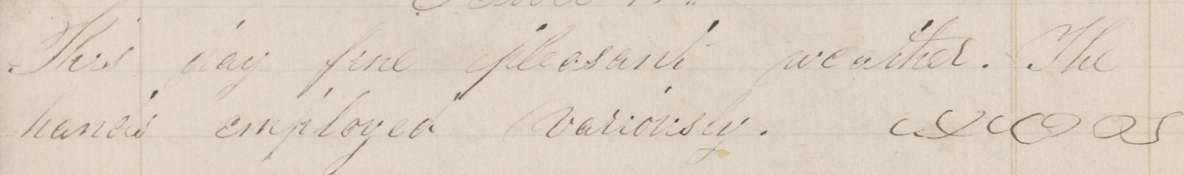 This day fine pleasant weather. The
hands employed variously.